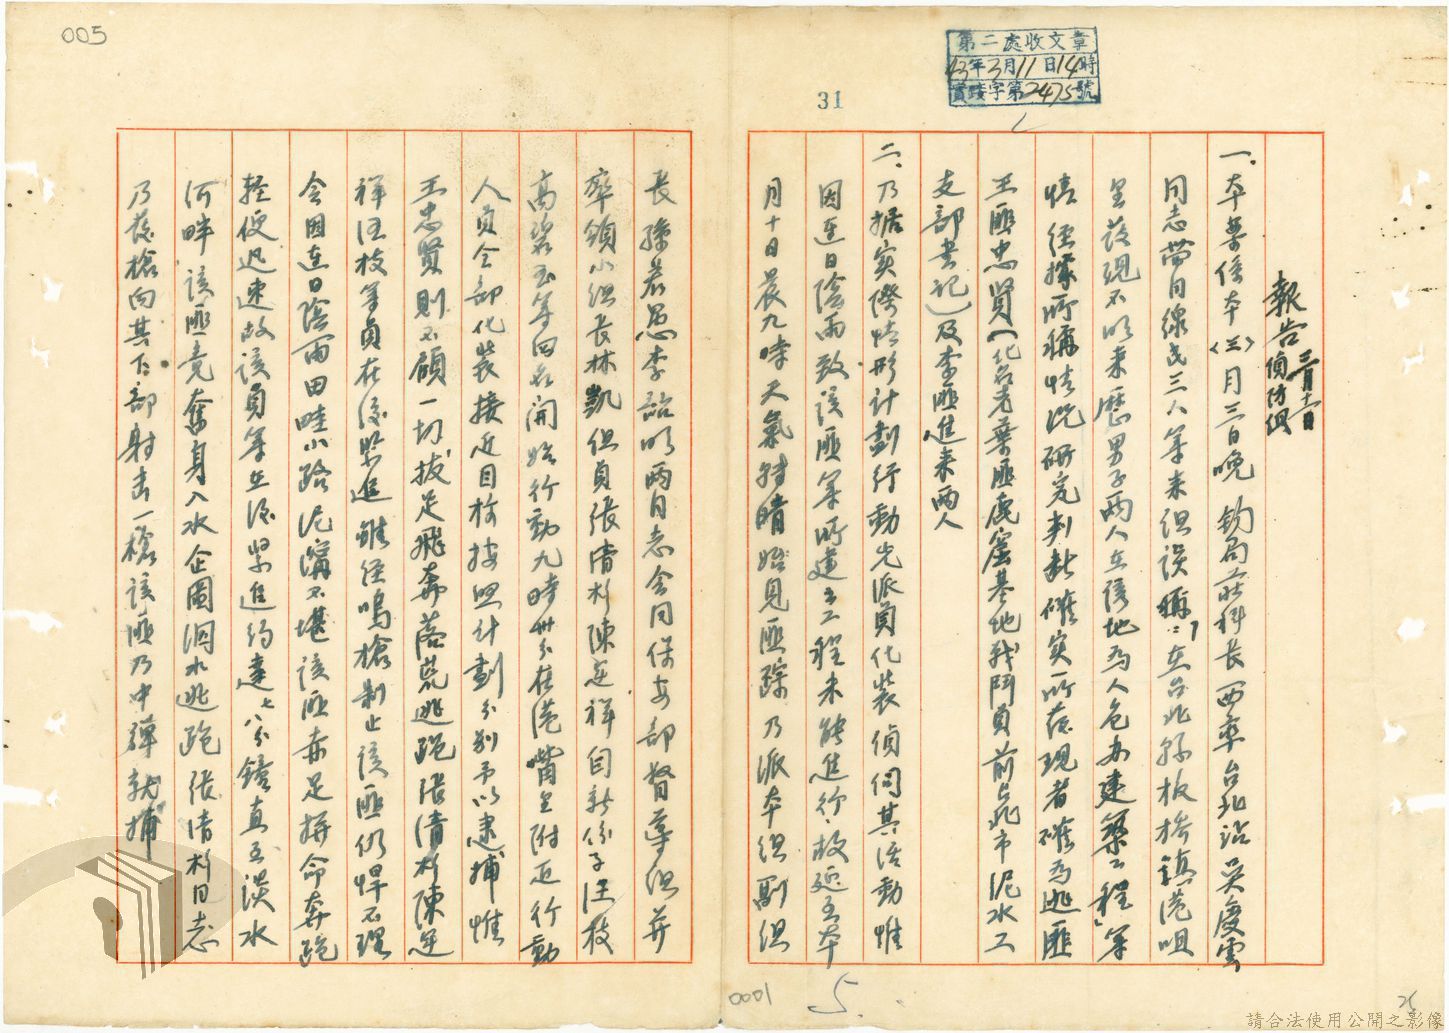 005
第二處收文章
43年3月11日14時
實踐字第2475號
31
報告 三月十一日 偵防組
一、本案係本〈三〉月三日晚 鈞局莊科長西率台北站吳慶雲
同志帶同線民三人等來組談稱:「在台北縣板橋鎮港咀
里發現不明來歷男子兩人在該地為人包办建築工程」等
情經據所稱情況研究判斷確實所發現者確為逃匪
王匪忠賢(化名老葉匪鹿窟基地战鬥員前台北市泥水工
支部書記)及李匪進來兩人
二、乃據實際情形計劃行動先派員化裝偵伺其活動惟
因連日陰雨致該匪等所建之工程未能進行故延至本
月十日晨九時天氣轉晴始見匪蹤乃派本組副組
長孫若愚李詒明兩同志會同保安部督導組并
率領小組長林凱組員張清杉陳定祥自新份子汪枝
高碧玉等四名開始行動九時卅分在港嘴里附近行動
人員全部化裝接近目標按照計劃分別予以逮捕惟
王忠賢則不顧一切拔足飛奔落荒逃跑張清杉陳定
祥汪枝等員在後緊追雖經鳴槍制止該匪仍悍不理
會因連日陰雨田畦小路泥濘不堪該匪赤足拚命奔跑
輕便迅速故該員等在後緊追約達七八分鐘直至淡水
河畔該匪竟奮身入水企圖泅水逃跑張清杉同志
乃發槍向其下部射击一槍該匪乃中彈就捕
0001
5.
25
請合法使用公開之影像